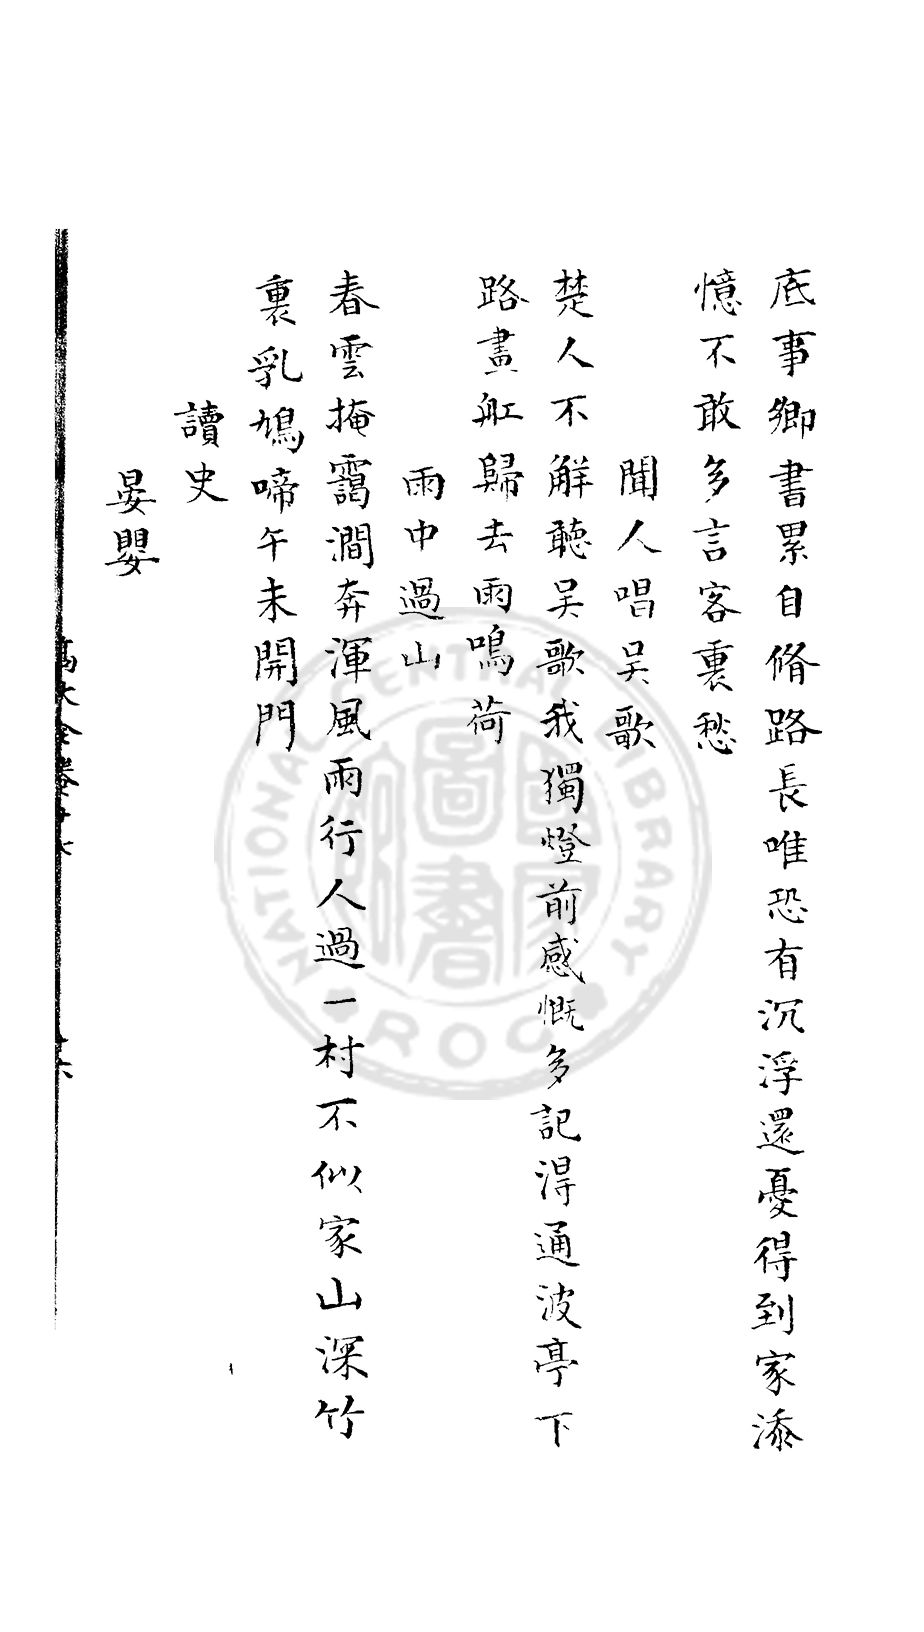 底事鄉書累自脩路長唯恐有沉浮還憂得到家添
憶不敢多言客裏愁
聞人唱吴歌
楚人不解聽吴歌我獨燈前感慨多記淂通波亭下
路畫舡歸去雨鳴荷
雨中過山
春雲掩靄澗奔渾風雨行人過一村不似家山深竹
裏乳鳩啼午未開門
讀史
晏嬰
NATIONAL CENTRAL LIBRARY
ROC
國家圖書館